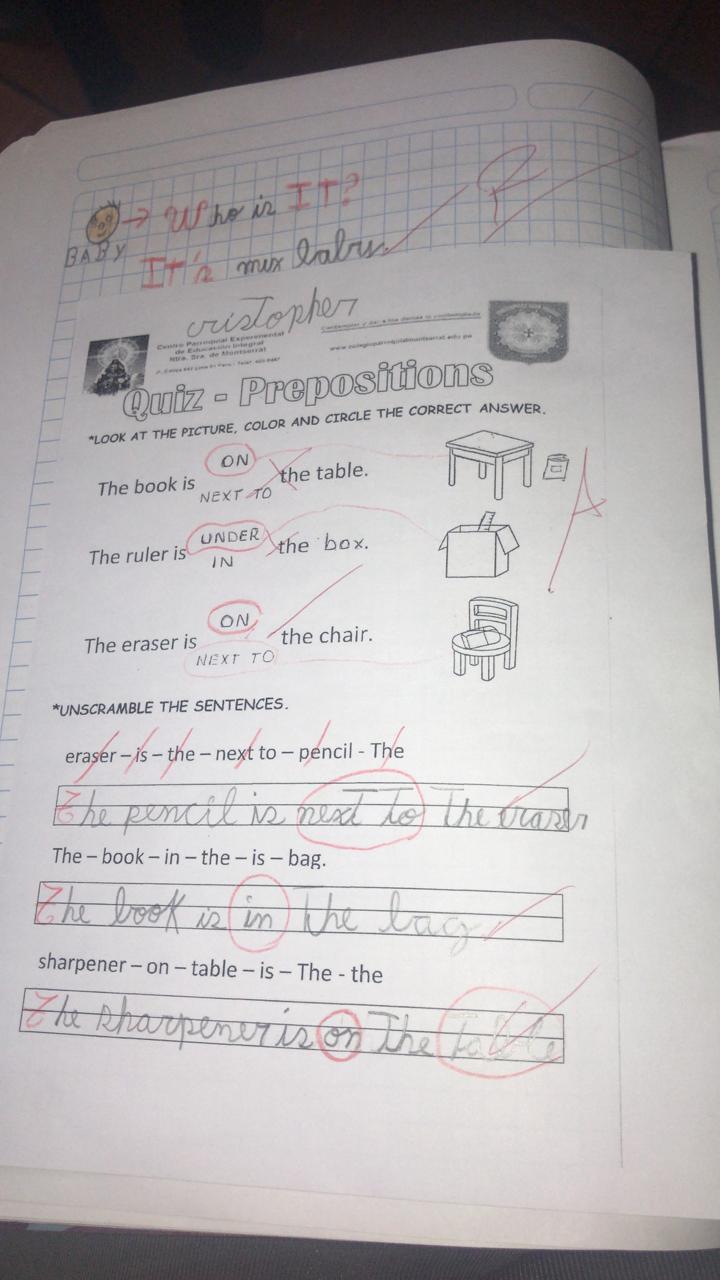 Who is IT?
BABY
IT's
cristopher
Centro Parroquial Experimental
de Educación Integral
Ntra. Sra. de Montserrat
www.colegioparroquialmontserrat.edu.pe
Quiz - Prepositions
*LOOK AT THE PICTURE, COLOR AND CIRCLE THE CORRECT ANSWER.
ON
The book is the table.
NEXT TO
A
UNDER
The ruler is the box.
IN
ON
The eraser is the chair.
NEXT TO
*UNSCRAMBLE THE SENTENCES.
eraser – is – the – next to – pencil - The
The pencil is next to The eraser
The – book – in – the – is – bag.
The book is in The bag
sharpener – on – table – is – The - the
The sharpener is on The table